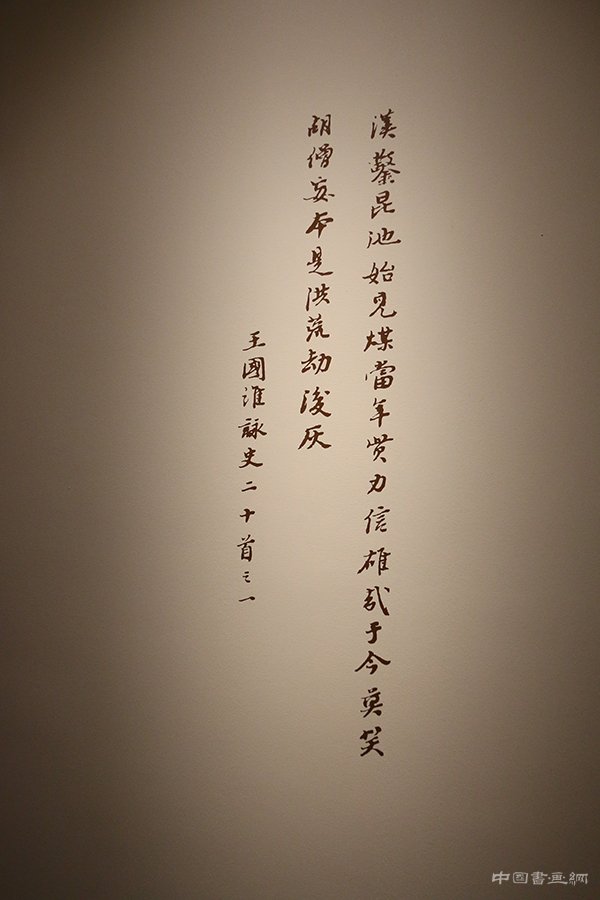 漢鑿昆池始見煤當年貲力信雄哉于今莫笑
胡僧妄本是洪荒劫後灰
王國維詠史二十首之一
中国書画網